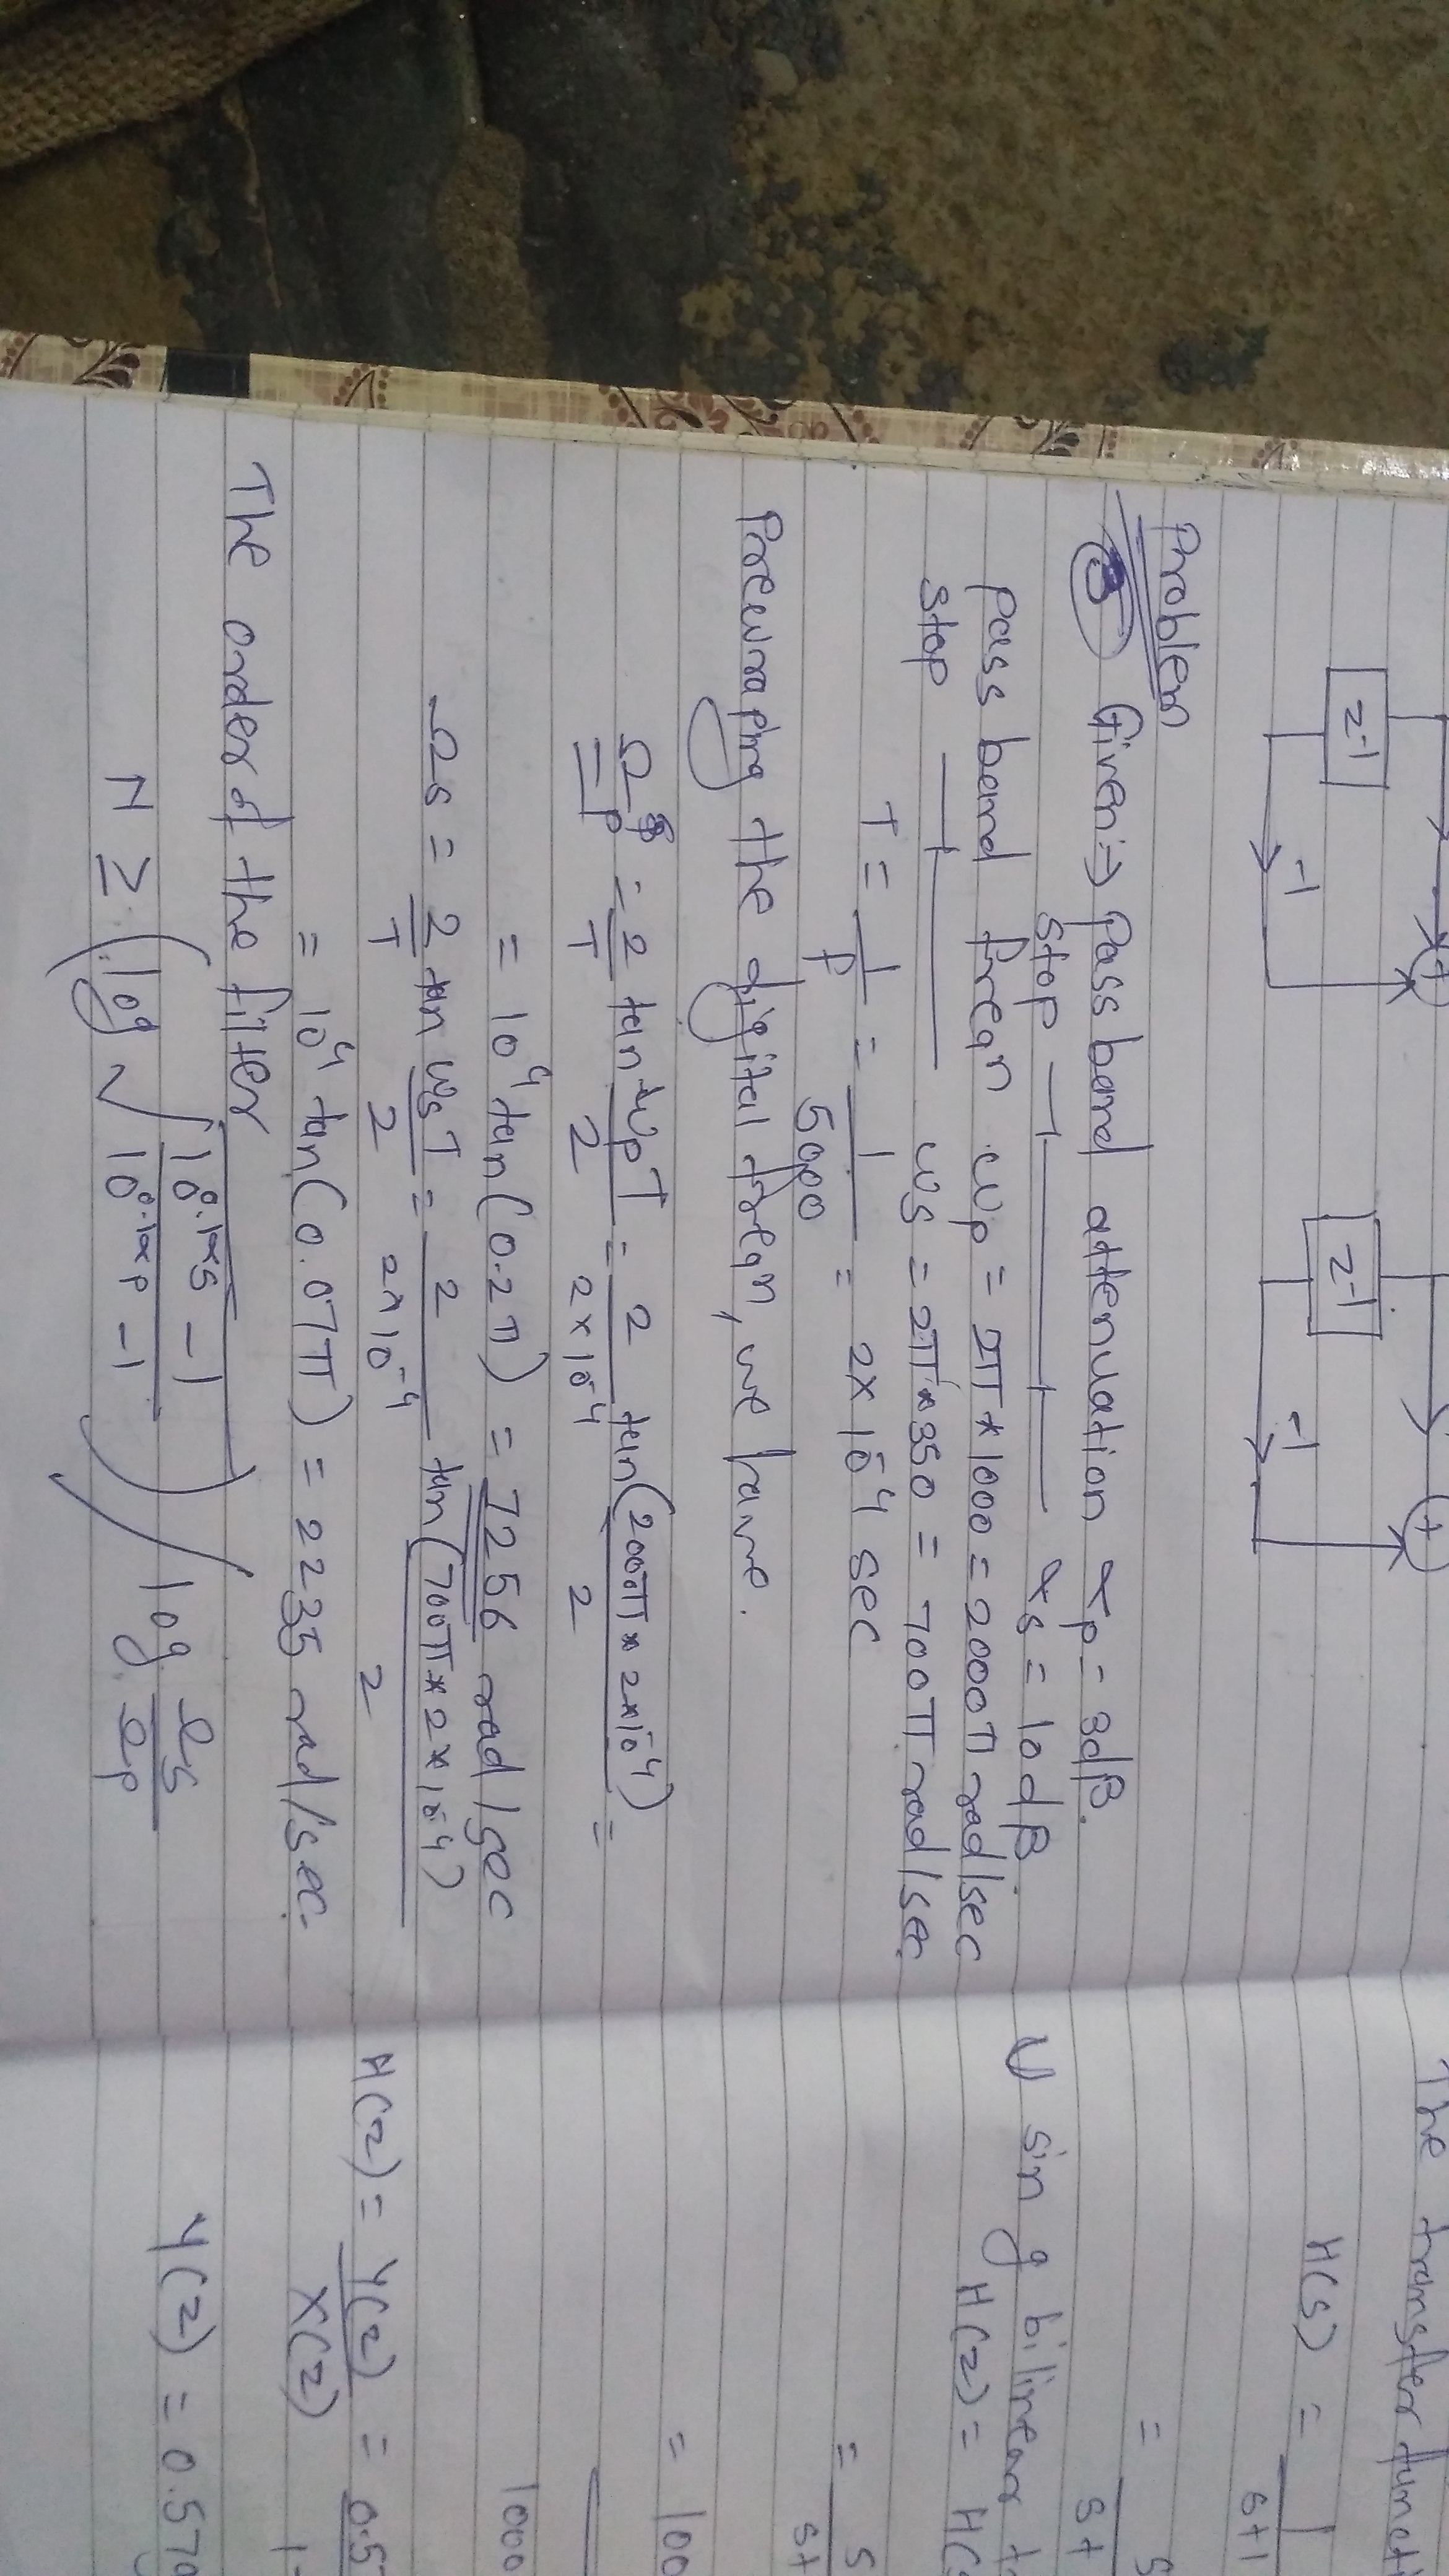 z-1
z-1
+
+
-1
-1
Problem
Given ⇒ Pass band attenuation αp = 3dB.
Stop αs = 10dB
pass band freqn ωp = 2π*1000 = 2000π rad/sec
Stop ωs = 2π*350 = 700π rad/sec
T = 1/f = 1/5000 = 2×10^-4 sec
Prewraphng the digital freqn, we have.
Ωp = 2/T tan ωpT/2 = 2/2×10^-4 tan(200π*2×10^-4)/2 =
= 10^4 tan(0.2π) = 7256 rad/sec
Ωs = 2/T tan ωsT/2 = 2/2×10^-4 tan(700π*2×10^-4)/2
= 10^4 tan(0.07π) = 2235 rad/sec.
The order of the filter
N ≥ (log √10^0.1αs -1/10^0.1αp -1) / log Ωs/Ωp
The transfer
H(s) = 1/s+1
Using bilinear
H(z) =
1000
H(z) = Y(z)/X(z) = 0.5
Y(z) = 0.570